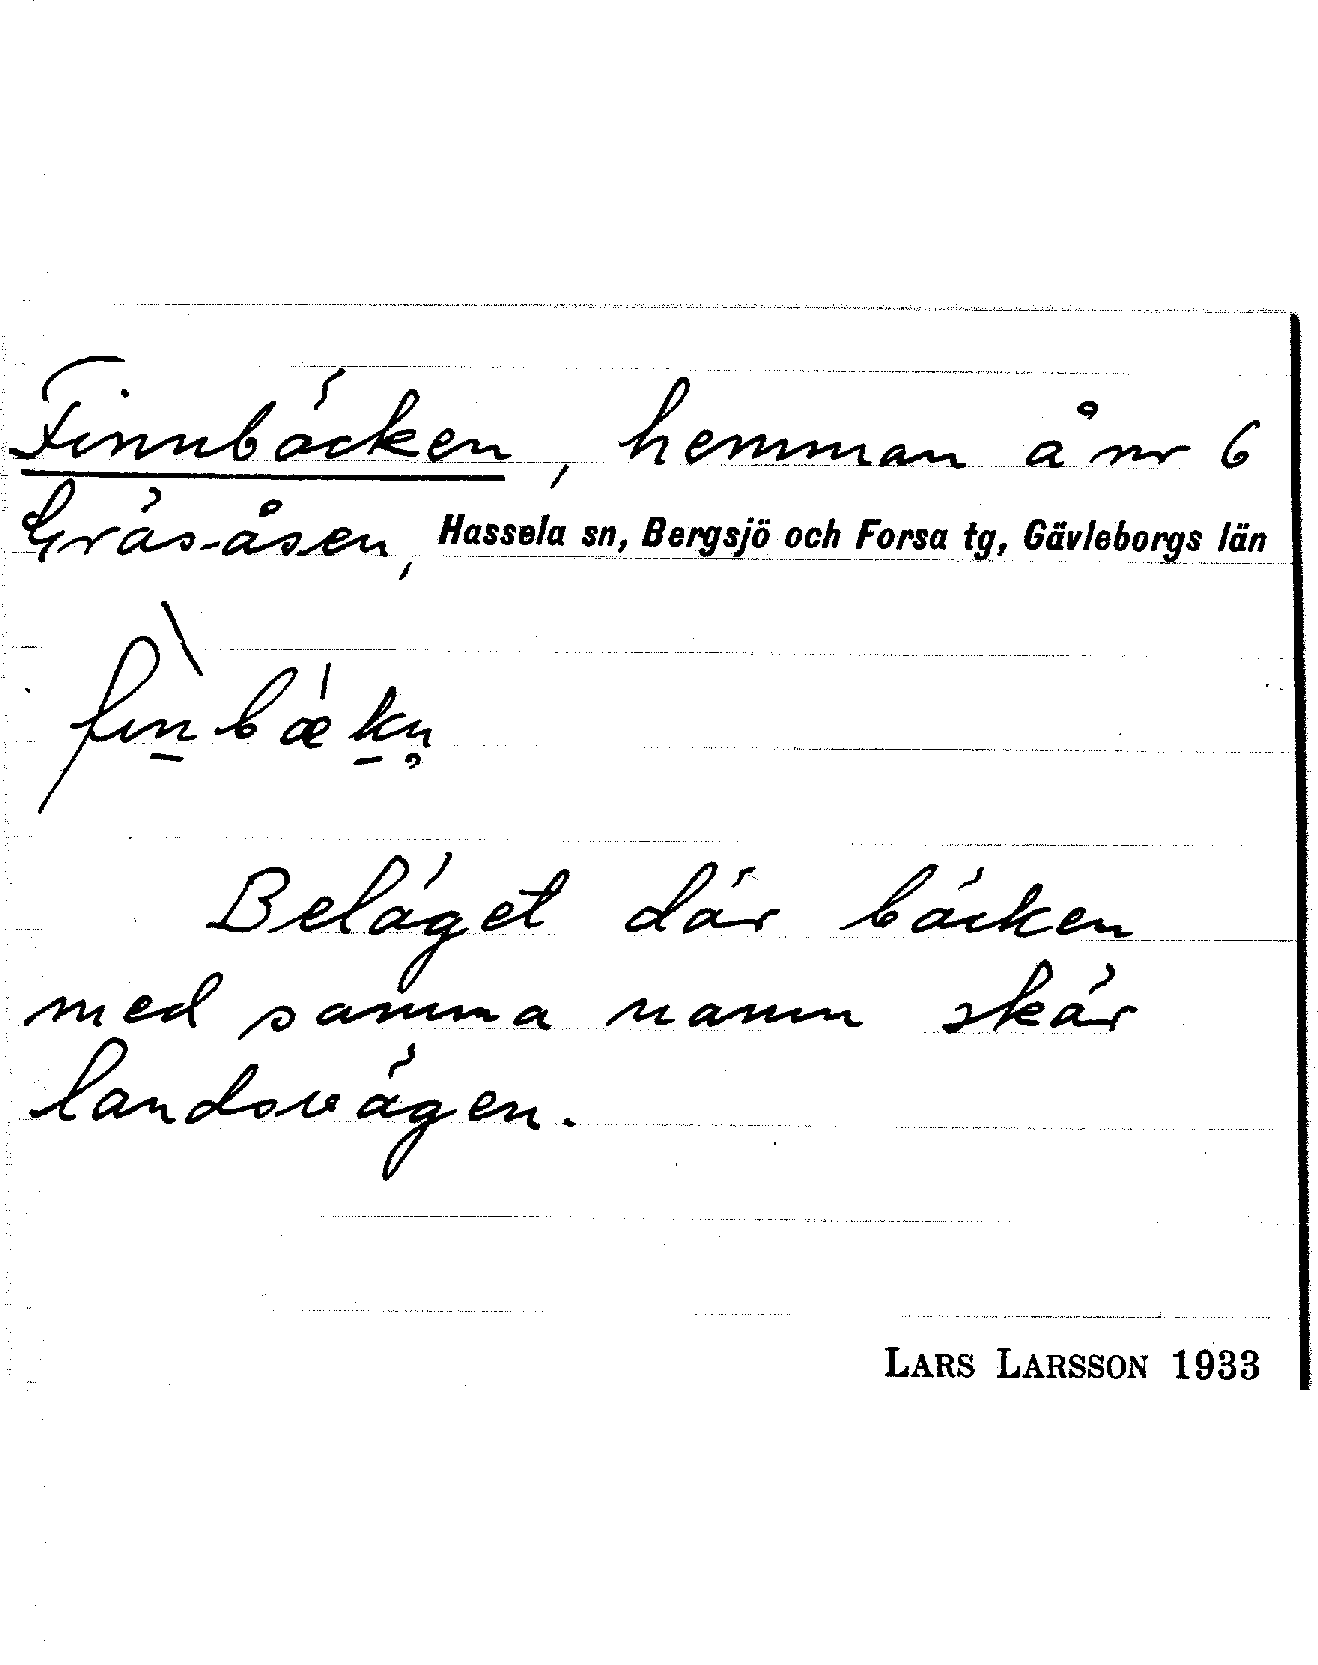 Finnbäcken, hemman å nr 6
Gräs-åsen, Hassela sn, Bergsjö och Forsa tg, Gävleborgs län
fìn̲bæ̍k̲n̥
Beläget där bäcken
med samma namn skär
landsvägen.
LARS LARSSON 1933